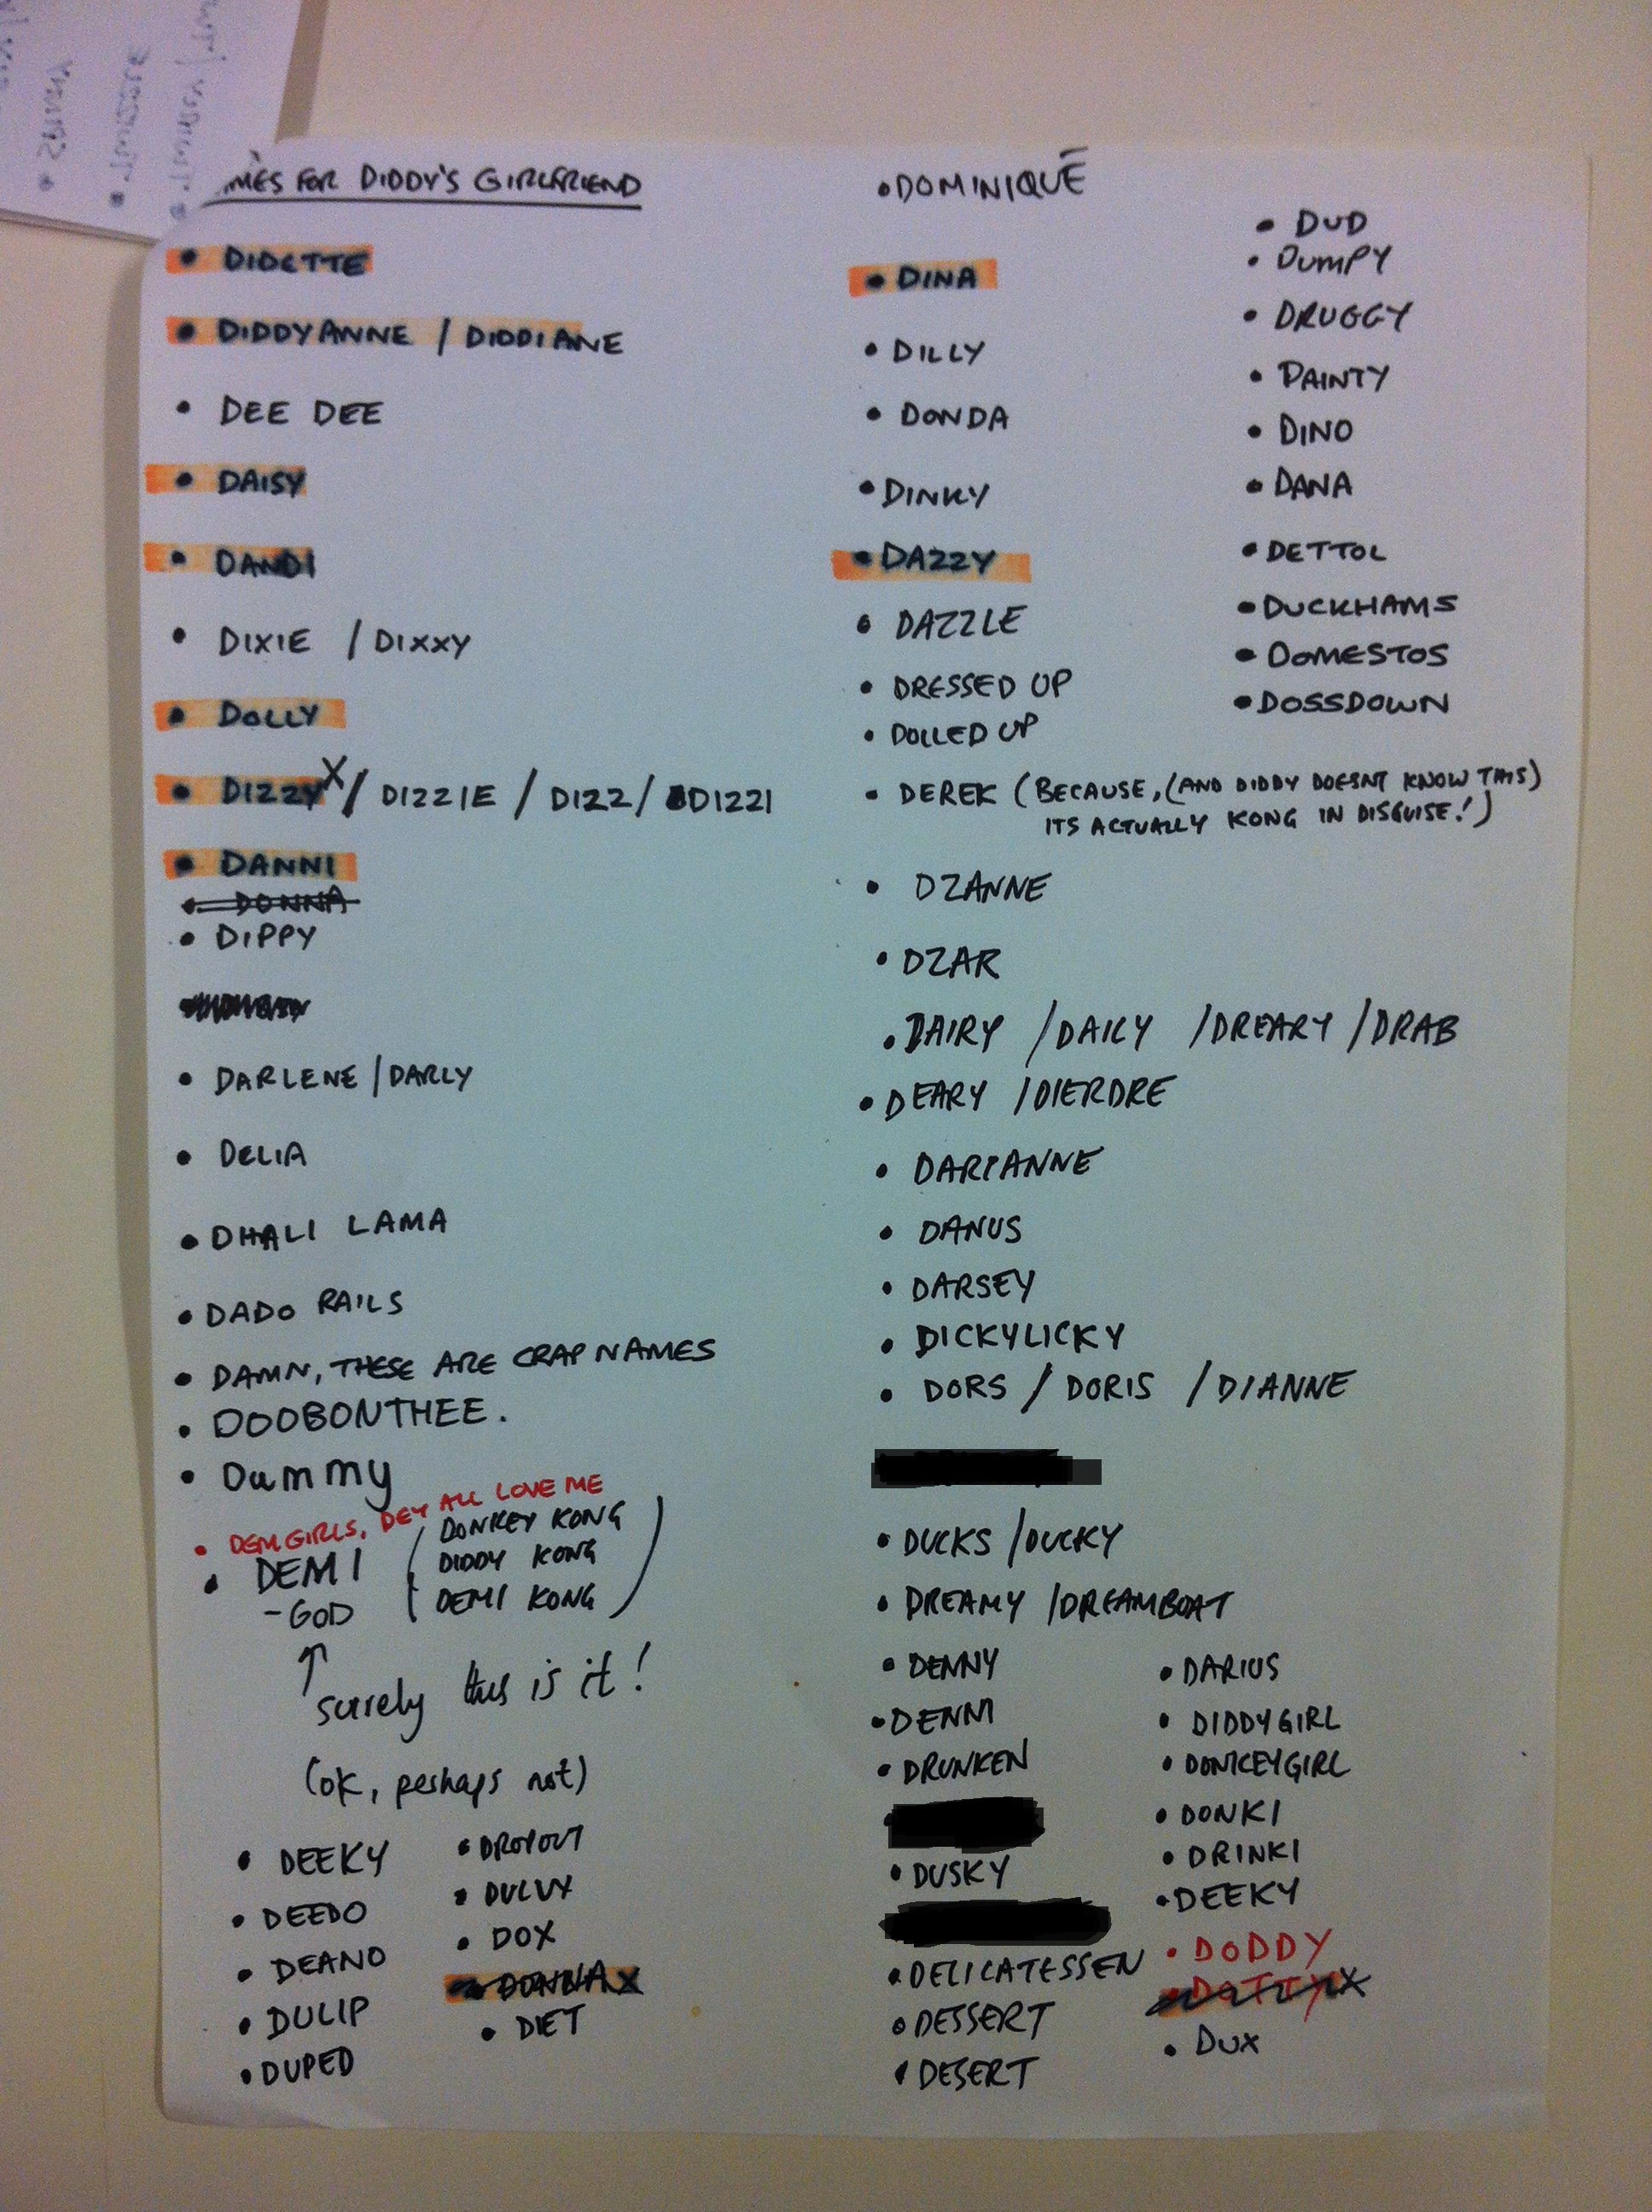 MES FOR DIDDY'S GIRLFRIEND
• DIDETTE
• DIDDYANNE / DIDDIANE
• DEE DEE
• DAISY
• DANDI
• DIXIE / DIXXY
• DOLLY
• DIZZY X / DIZZIE / DIZZ / DIZZI
• DANNI
• DONNA
• DIPPY
• DARLENE / DARLY
• DELIA
• DHALI LAMA
• DADO RAILS
• DAMN, THESE ARE CRAP NAMES
• DOOBONTHEE.
• Dummy
• DEM GIRLS, DEY ALL LOVE ME
• DEMI
-GOD
(DONKEY KONG
DIDDY KONG
DEMI KONG)
↑ surely this is it!
(ok, perhaps not)
• DEEKY
• DEEDO
• DEANO
• DULIP
• DUPED
• DROPOUT
• DULUX
• DOX
• DONNA X
• DIET
• DOMINIQUÉ
• DINA
• DILLY
• DONDA
• DINKY
• DAZZY
• DAZZLE
• DRESSED UP
• DOLLED UP
• DUD
• DUMPY
• DRUGGY
• DAINTY
• DINO
• DANA
• DETTOL
• DUCKHAMS
• DOMESTOS
• DOSSDOWN
• DEREK (BECAUSE, (AND DIDDY DOESNT KNOW THIS)
ITS ACTUALLY KONG IN DISGUISE!)
• DZANNE
• DZAR
• DAIRY / DAILY / DREARY / DRAB
• DEARY / DIERDRE
• DARIANNE
• DANUS
• DARSEY
• DICKYLICKY
• DORS / DORIS / DIANNE
• DUCKS / DUCKY
• DREAMY / DREAMBOAT
• DENNY
• DENNI
• DRUNKEN
• DUSKY
• DELICATESSEN
• DESSERT
• DESERT
• DARIUS
• DIDDYGIRL
• DONKEYGIRL
• DONKI
• DRINKI
• DEEKY
• DODDY
• DOTTY X
• DUX